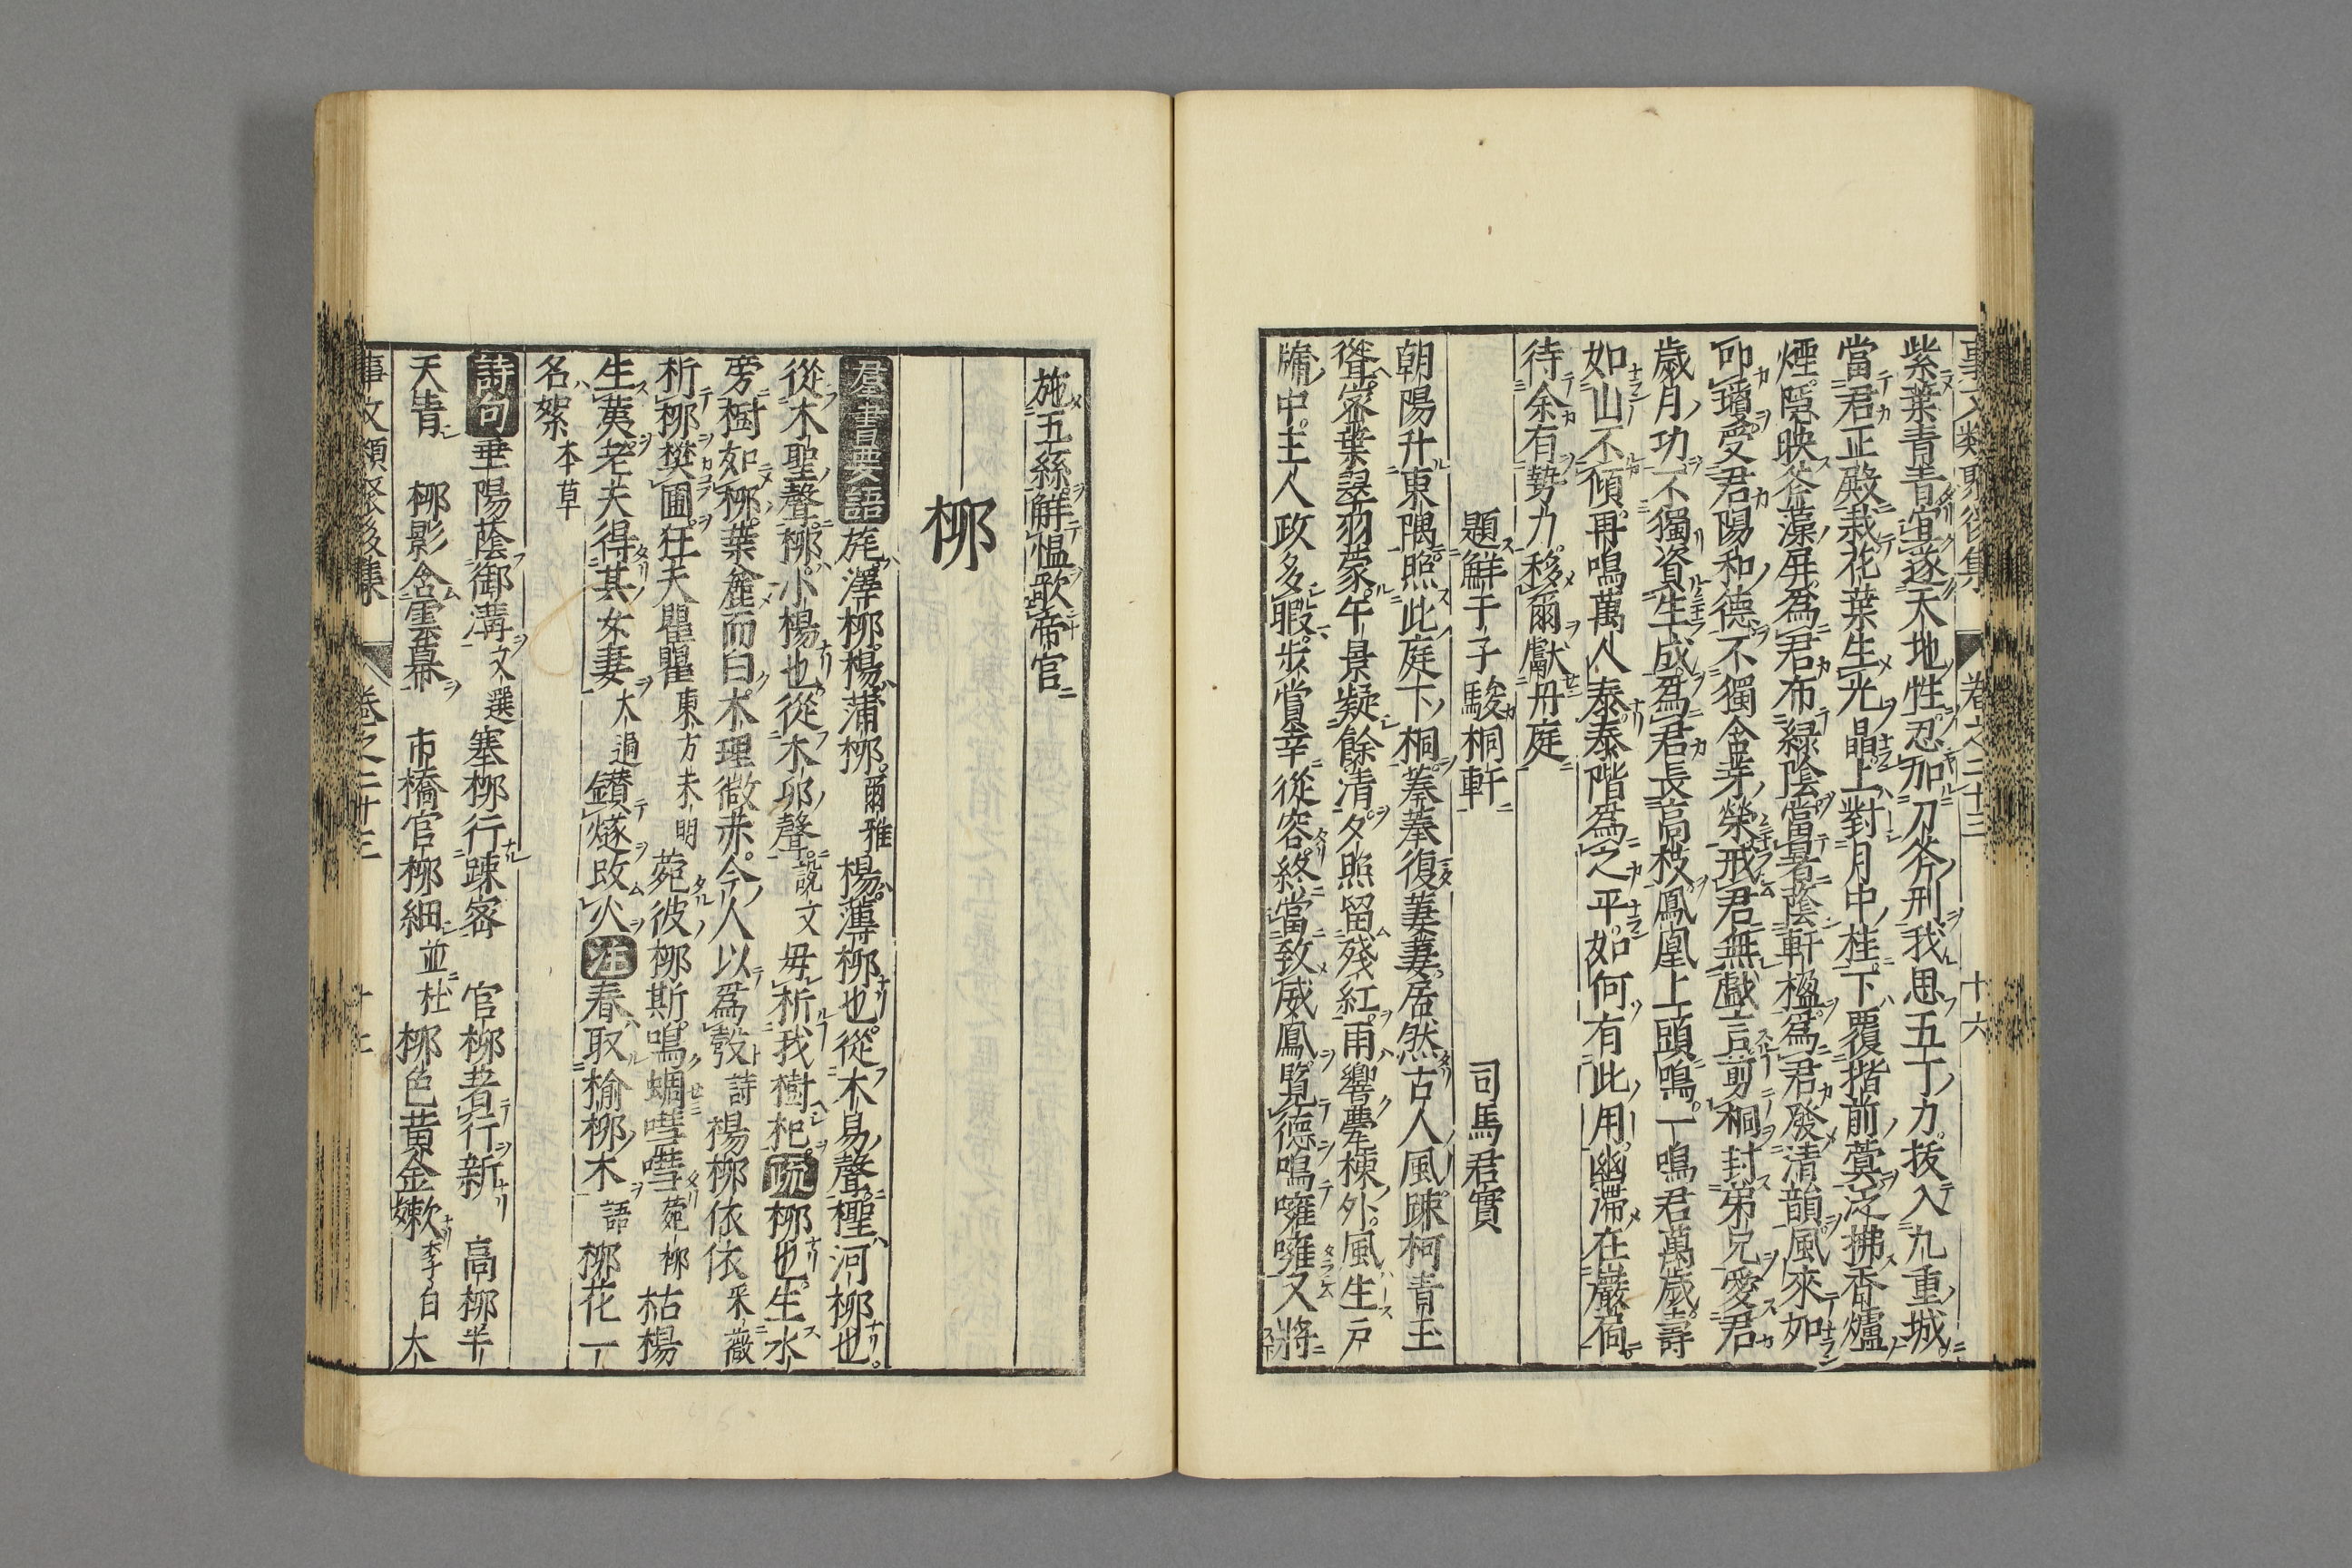 事文類聚後集 卷之二十三 十六
紫葉青青宜遂天地性忍加刀斧刑我思五丁力拔入九重城
當君正殿栽花葉生光晶上對月中桂下覆揩前蓂泛拂香爐
煙隱映斧藻屏爲君布綠陰當暑蔭軒楹爲君發清韻風來如
叩瓊受君陽和德不獨含芽榮戒君無戲言剪桐封弟兄愛君
歲月功不獨資生成爲君長高枝鳳凰上頭鳴一鳴君萬歲壽
如山不傾再鳴萬人泰泰階爲之平如何有此用幽滯在巖扃
待余有勢力移爾獻丹庭
題鮮于子駿桐軒 司馬君實
朝陽升東隅照此庭下桐蓁蓁復萋萋居然古人風踈柯青玉
聳密葉翠羽蒙午景凝餘清夕照留殘紅雨響甍棟外風生戶
牖中主人政多暇步賞幸從容終當致威鳳覽德鳴噰噰又將
施五絲解慍歌帝宫
柳
羣書要語 旄澤柳楊蒲柳爾雅楊薄柳也從木昜聲檉河柳也
從木聖聲柳小楊也從木丣聲說文毋折我樹杞疏柳也生水
旁樹如柳葉麄而白木理微赤今人以爲轂詩楊柳依依采薇
折柳樊圃狂夫瞿瞿東方未明菀彼柳斯鳴蜩嘒嘒菀柳枯楊
生荑老夫得其女妻大過鑽燧改火注春取楡柳木語柳花一
名絮本草
詩句 垂陽蔭御溝文選塞柳行踈密 官柳着行新 高柳半
天青 柳影含雲幕 市橋官柳細並杜柳色黃金嫩李白大
事文類聚後集 卷之二十三 十七